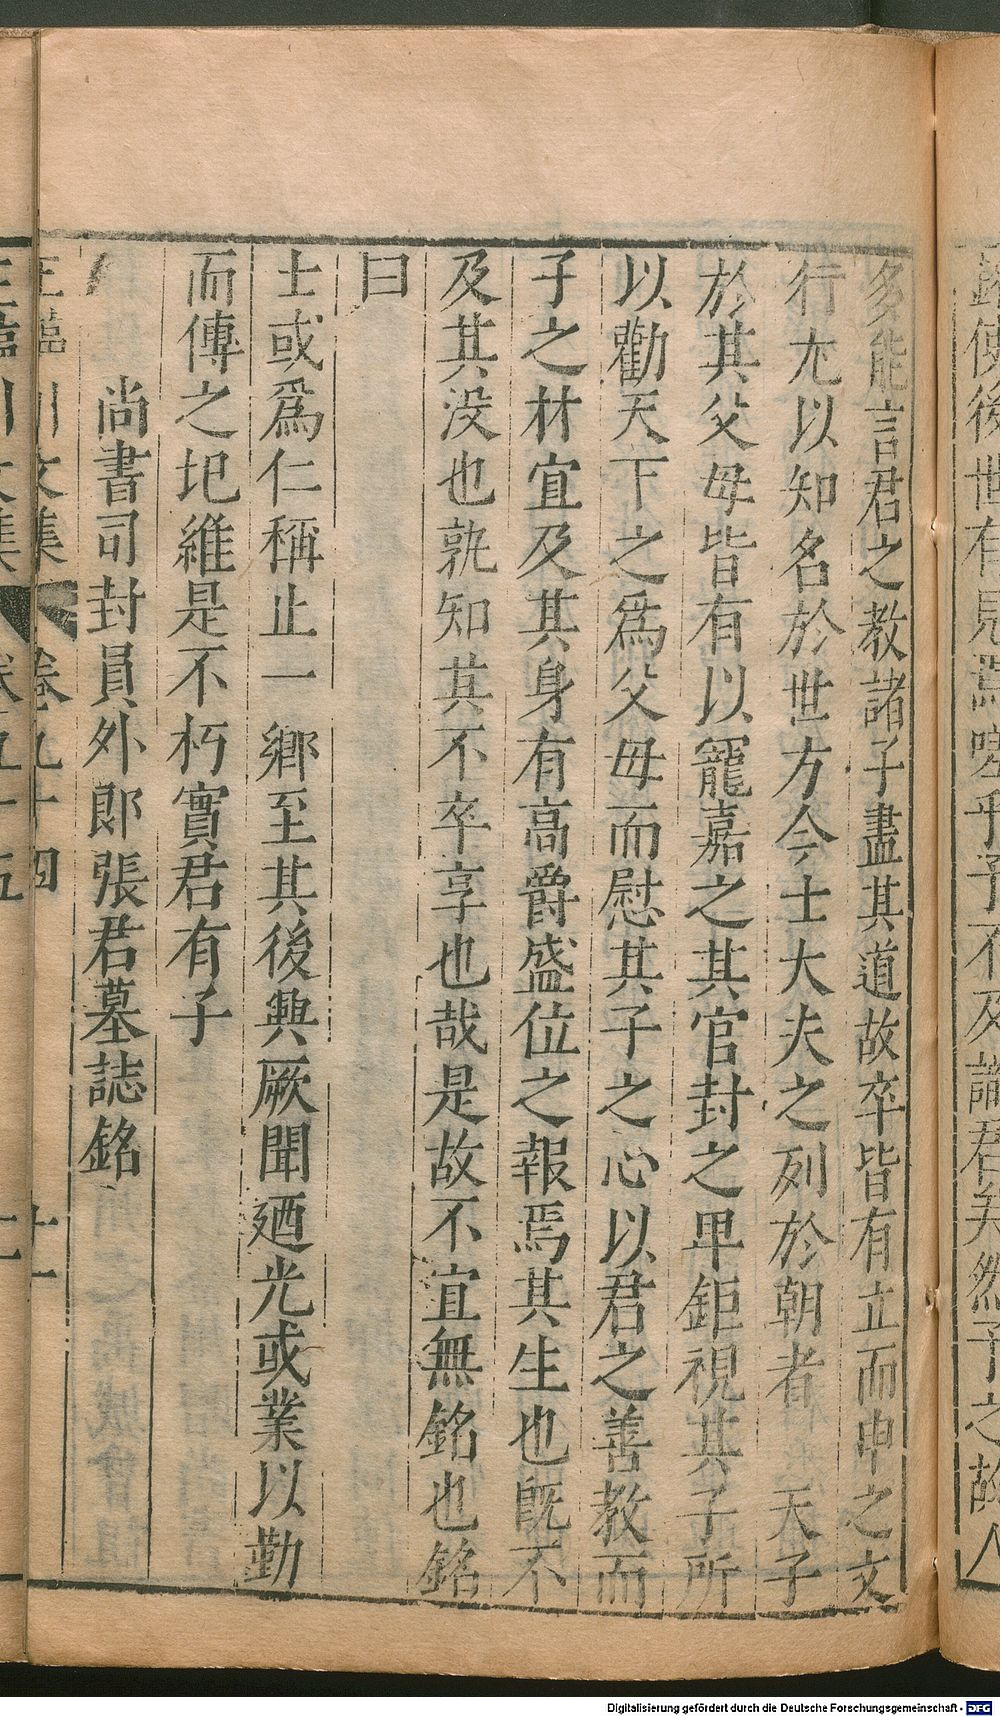 錄使後世有見焉嗟乎予不及識君矣然予之故人
多能言君之教諸子盡其道故卒皆有立而申之文
行尤以知名於世方今士大夫之列於朝者　天子
於其父母皆有以寵嘉之其官封之卑鉅視其子所
以勸天下之爲父母而慰其子之心以君之善教而
子之材宜及其身有高爵盛位之報焉其生也既不
及其没也孰知其不卒享也哉是故不宜無銘也銘
曰
士或爲仁稱止一鄉至其後興厥聞廼光或業以勤
而傳之圯維是不朽實君有子
尚書司封員外郎張君墓誌銘
王臨川文集　卷九十四　十一
王臨川文集
Digitalisierung gefördert durch die Deutsche Forschungsgemeinschaft - DFG